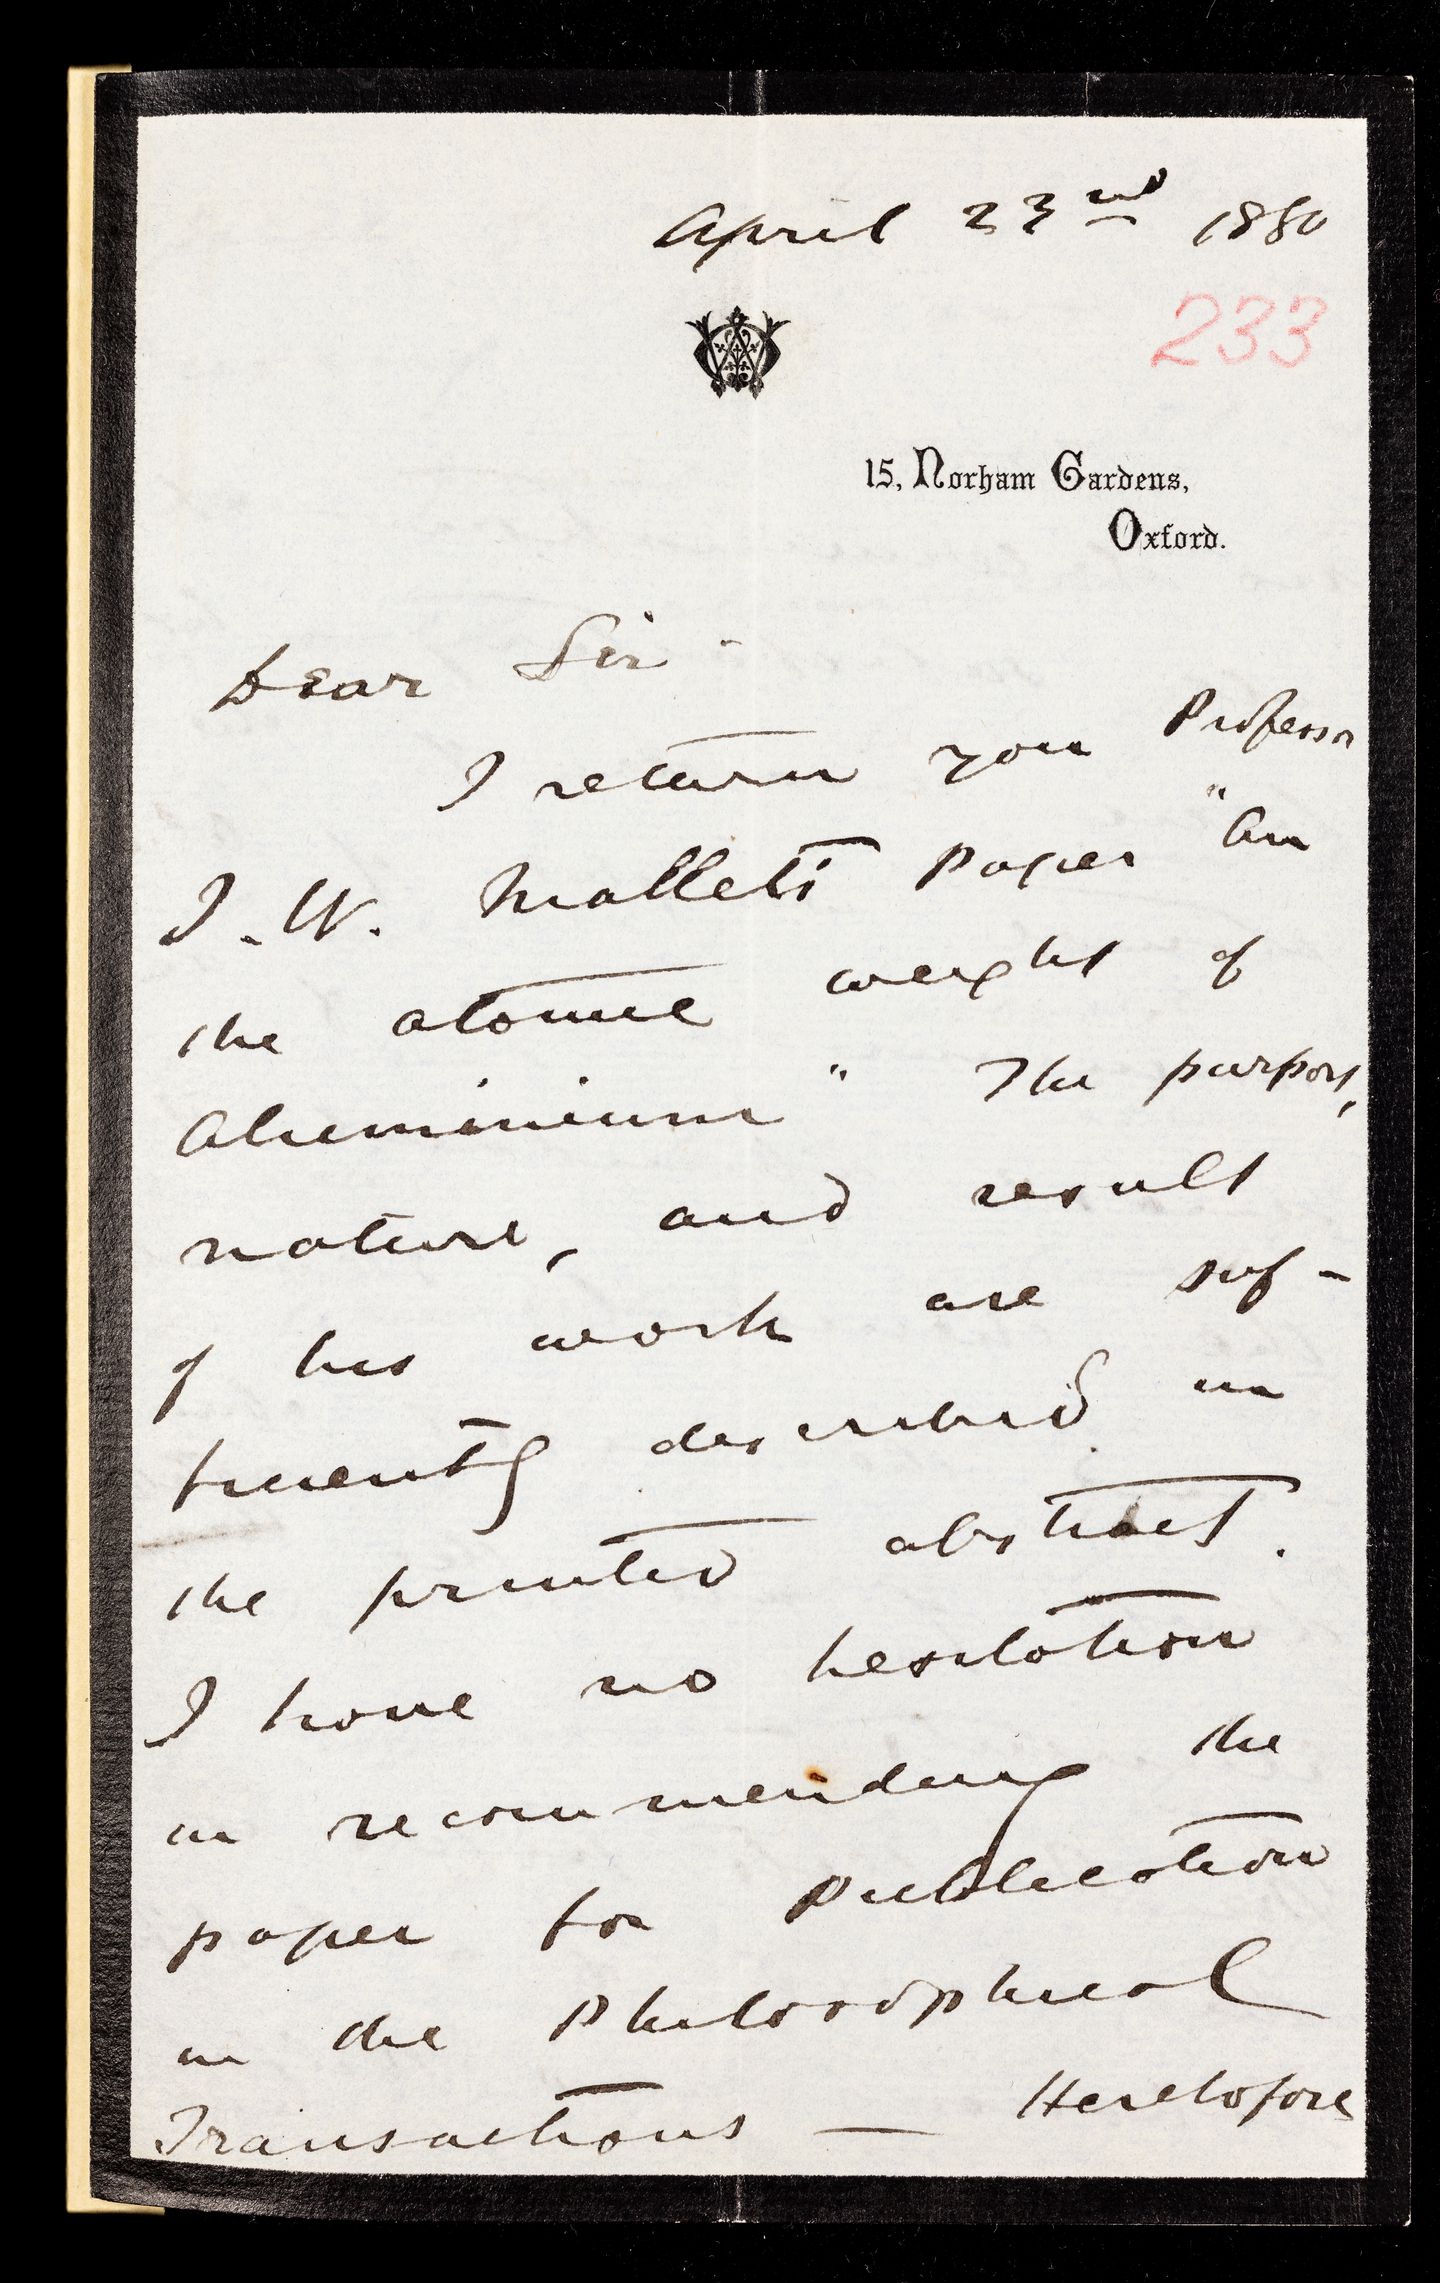 April 23nd 1880
233
15, Norham Gardens,
Oxford.
Dear Sir -
I return you Professor
J. W. Mallet's paper "On
the atomic weight of
Aluminium" The purpose,
nature, and result
of his work are suf-
ficiently described in
the printed abstract.
I have no hesitation
in recommending the
paper for publication
in the Philosophical
Transactions — Heretofore